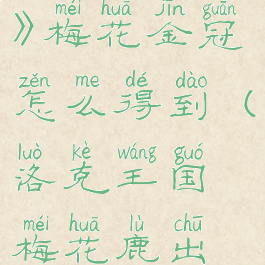 méi huā jīn guān
》梅花金冠
zěn me dé dào
怎么得到（
luò kè wáng guó
洛克王国
méi huā lù chū
梅花鹿出